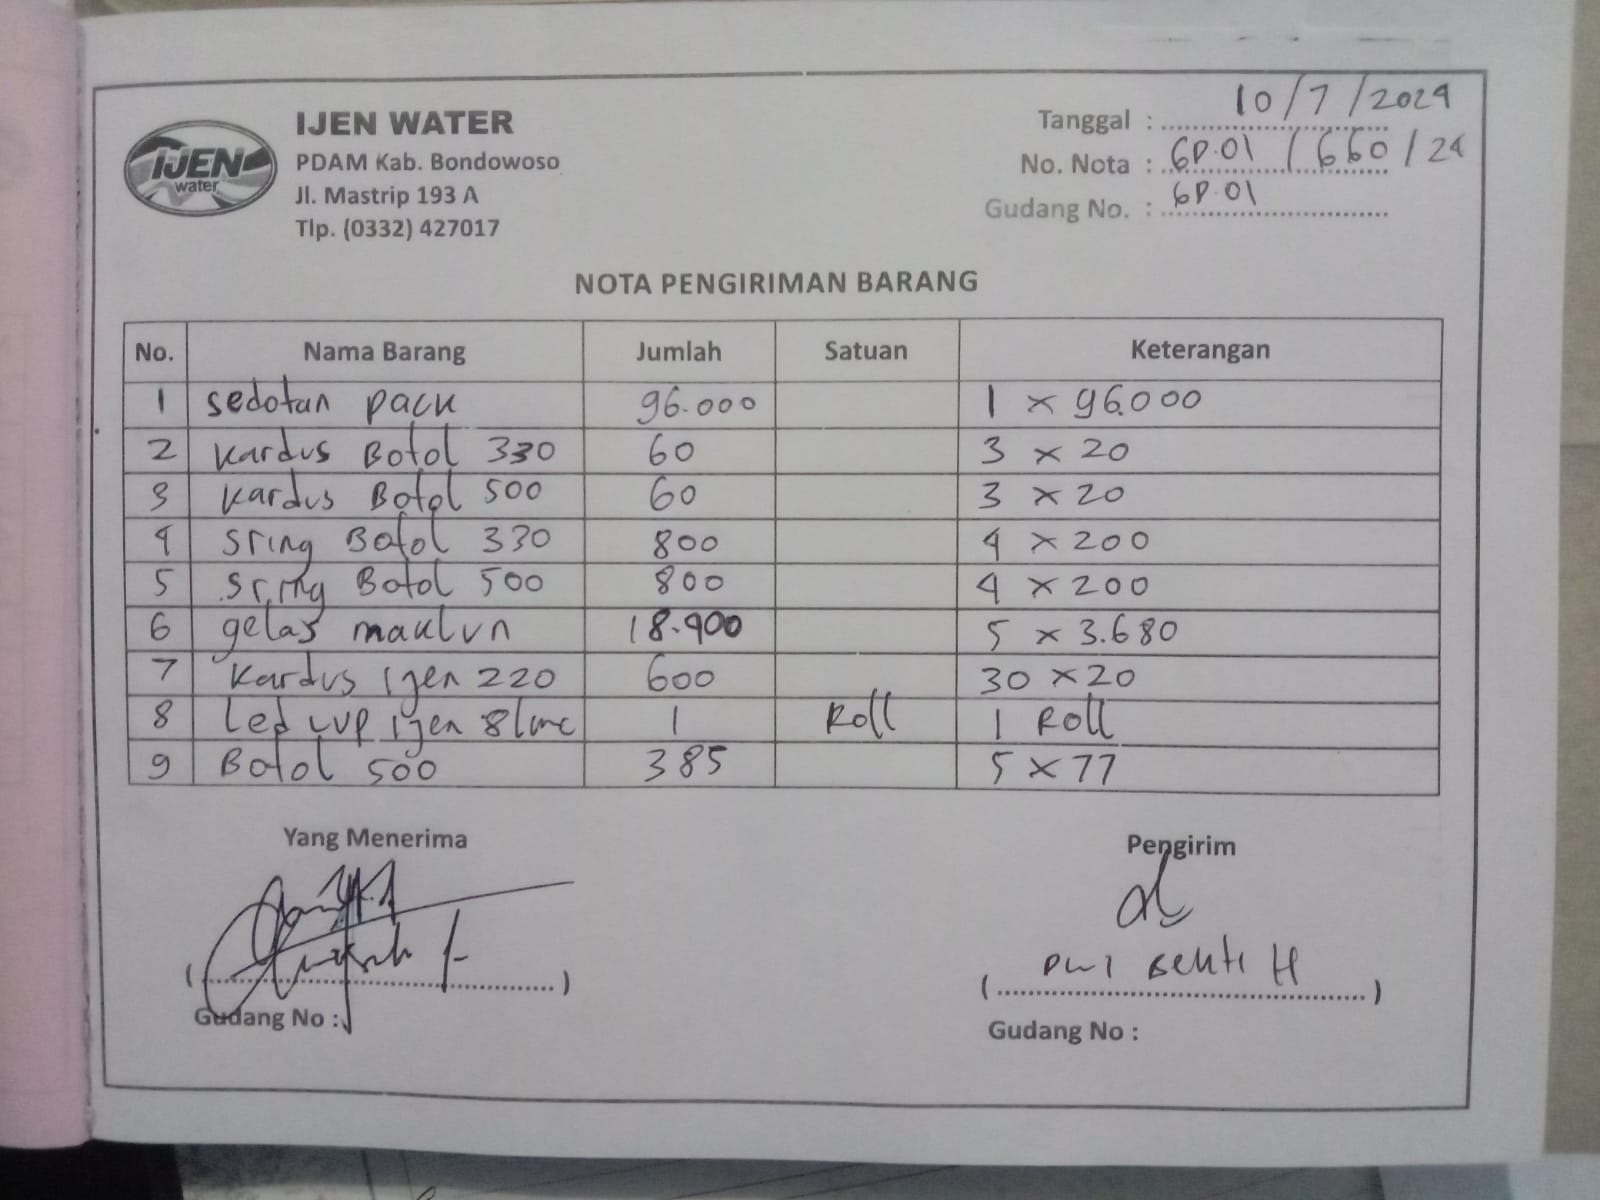 IJEN water
IJEN WATER
PDAM Kab. Bondowoso
Jl. Mastrip 193 A
Tlp. (0332) 427017
Tanggal : 10/7/2024
No. Nota : GD.01 / 660 / 24
Gudang No. : GD.01
NOTA PENGIRIMAN BARANG
No. Nama Barang Jumlah Satuan Keterangan
1 sedotan pack 96.000 1 x 96.000
2 Kardus Botol 330 60 3 x 20
3 Kardus Botol 500 60 3 x 20
4 sring Botol 330 800 4 x 200
5 sring Botol 500 800 4 x 200
6 gelas maklun 18.400 5 x 3.680
7 Kardus ijen 220 600 30 x 20
8 Led cup ijen 8 line 1 Roll 1 Roll
9 Botol 500 385 5 x 77
Yang Menerima Pengirim
Dwi Bekti H
Gudang No : Gudang No :